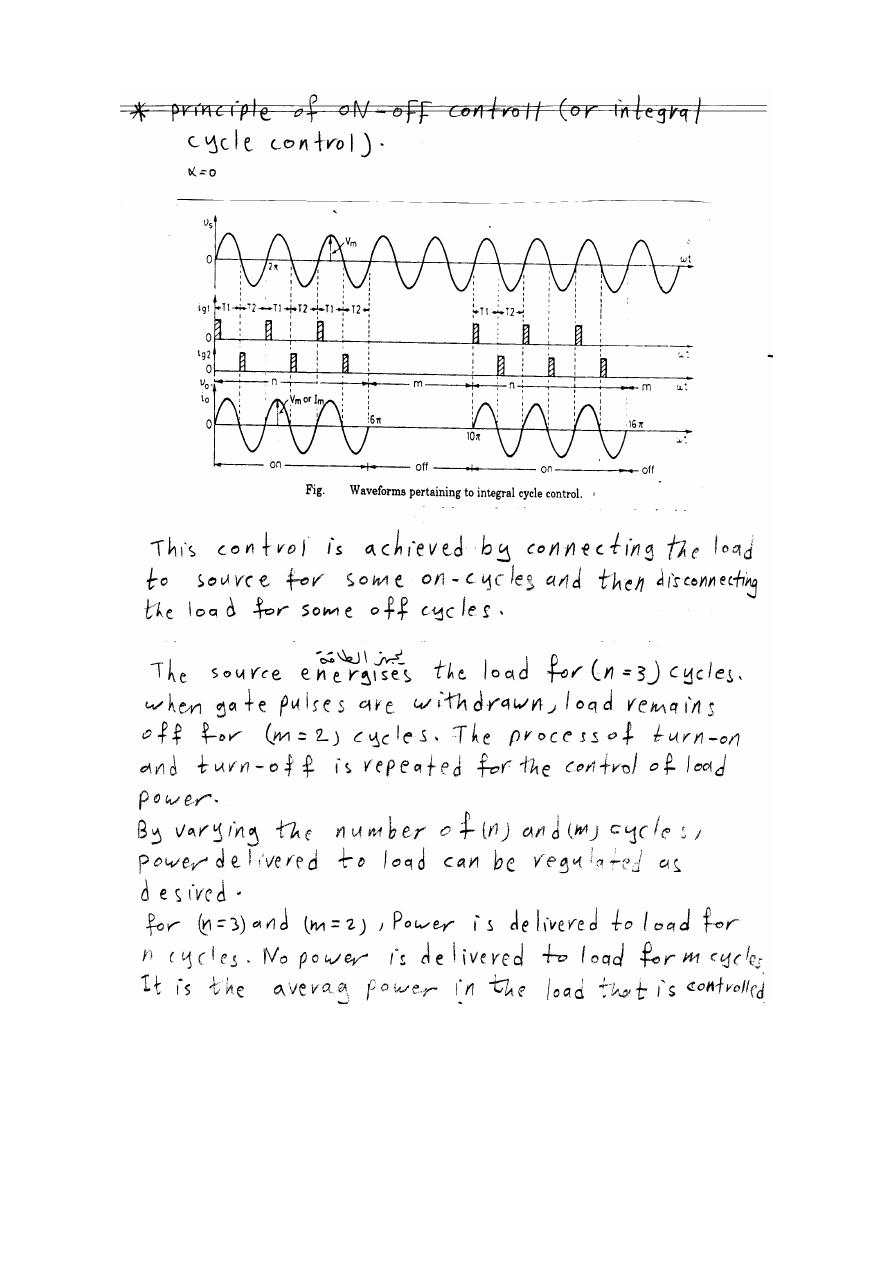 * principle of ON-OFF controll (or integral
cycle control).
α=0
υs
Vm
0
2π
ωt
ig1
T1 T2 T1 T2 T1 T2
T1 T2
0
ig2
0
n m n m
υo
io
Vm or Im
0
6π
10π
16π
on off on off
Fig. Waveforms pertaining to integral cycle control.
This control is achieved by connecting the load
to source for some on-cycles and then disconnecting
the load for some off cycles.
The source energises the load for (n=3) cycles.
when gate pulses are withdrawn, load remains
off for (m=2) cycles. The process of turn-on
and turn-off is repeated for the control of load
power.
By varying the number of (n) and (m) cycles,
power delivered to load can be regulated as
desired.
for (n=3) and (m=2), Power is delivered to load for
n cycles. No power is delivered to load for m cycles
It is the averag power in the load that is controlled